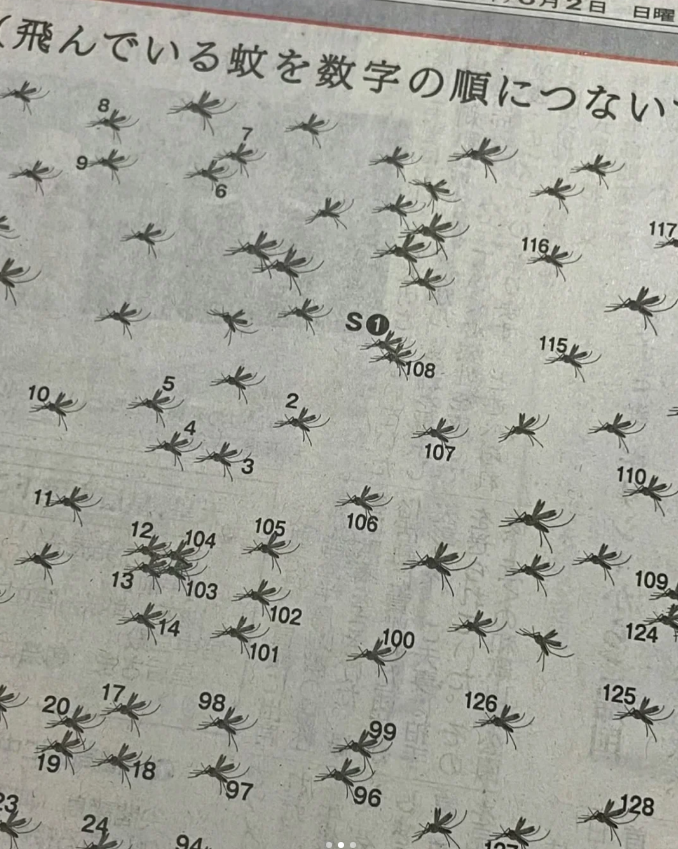 月2日 日曜
（飛んでいる蚊を数字の順につない
8
7
9
6
117
116
S1
115
108
10
5
2
4
107
3
110
11
106
12
104
105
13
103
109
102
14
124
101
100
20
17
98
126
125
99
19
18
97
96
23
128
24
94
127